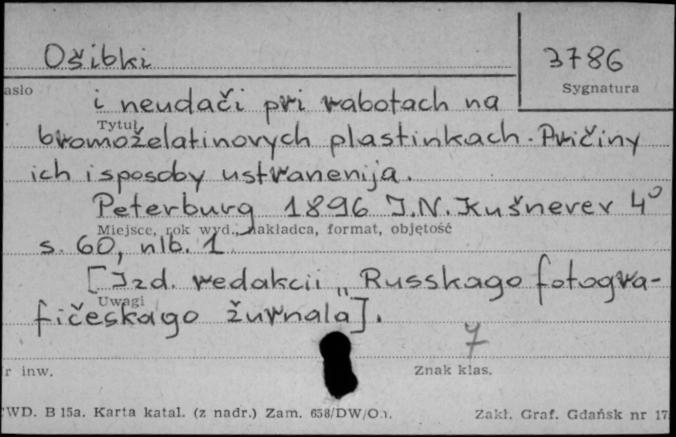 Ošibki 3786
asło Sygnatura
i neudači pri rabotach na
Tytuł
bromoželatinovych plastinkach. Pričiny
ich i sposoby ustranenija.
Peterburg 1896 I.N. Kušnerev 4°
Miejsce, rok wyd., nakładca, format, objętość
s. 60, nlb. 1
[Izd. redakcii „Russkago fotogra-
Uwagi
fičeskago žurnala].
7
r inw. Znak klas.
WD. B 15a. Karta katal. (z nadr.) Zam. 658/DW/O. Zakł. Graf. Gdańsk nr 17